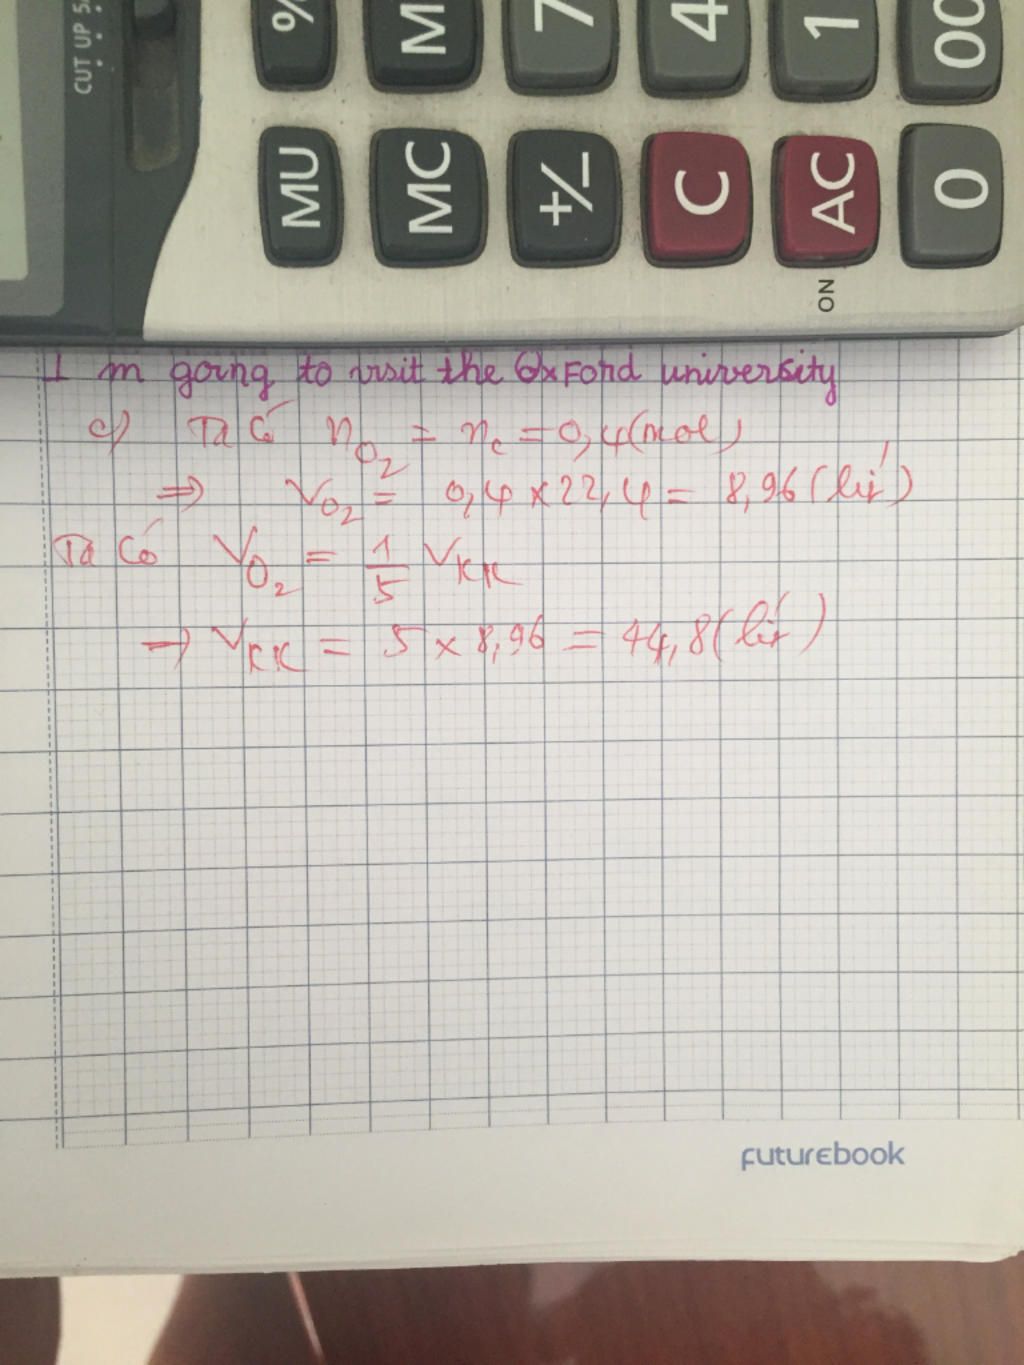 CUT UP 5
% M 7 4 1 00
MU MC +/− C AC 0
ON
I m going to visit the Oxford university
c) Ta có n O2 = nc = 0,4 (mol)
⇒ V O2 = 0,4 x 22,4 = 8,96 (lít)
Ta có V O2 = 1/5 V KK
→ V KK = 5 x 8,96 = 44,8 (lít)
futurebook